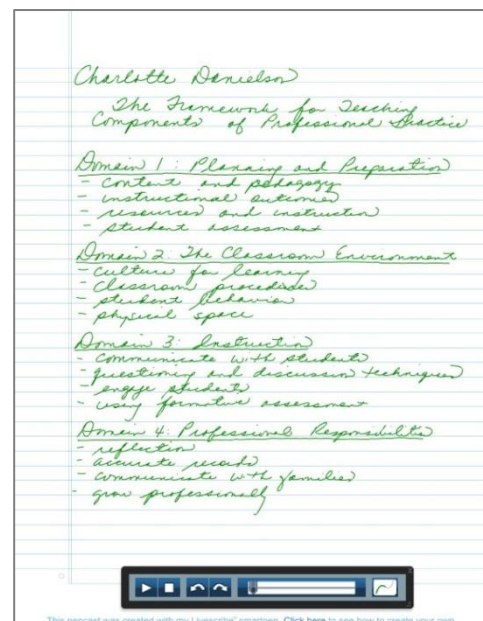 Charlotte Danielson
The Framework for Teaching
Components of Professional Practice
Domain 1: Planning and Preparation
- content and pedagogy
- instructional outcomes
- resources and instruction
- student assessment
Domain 2: The Classroom Environment
- culture for learning
- classroom procedures
- student behavior
- physical space
Domain 3: Instruction
- communicate with students
- questioning and discussion techniques
- engage students
- using formative assessment
Domain 4: Professional Responsibilities
- reflection
- accurate records
- communicate with families
- grow professionally
This pencast was created with my Livescribe™ smartpen. Click here to see how to create your own.